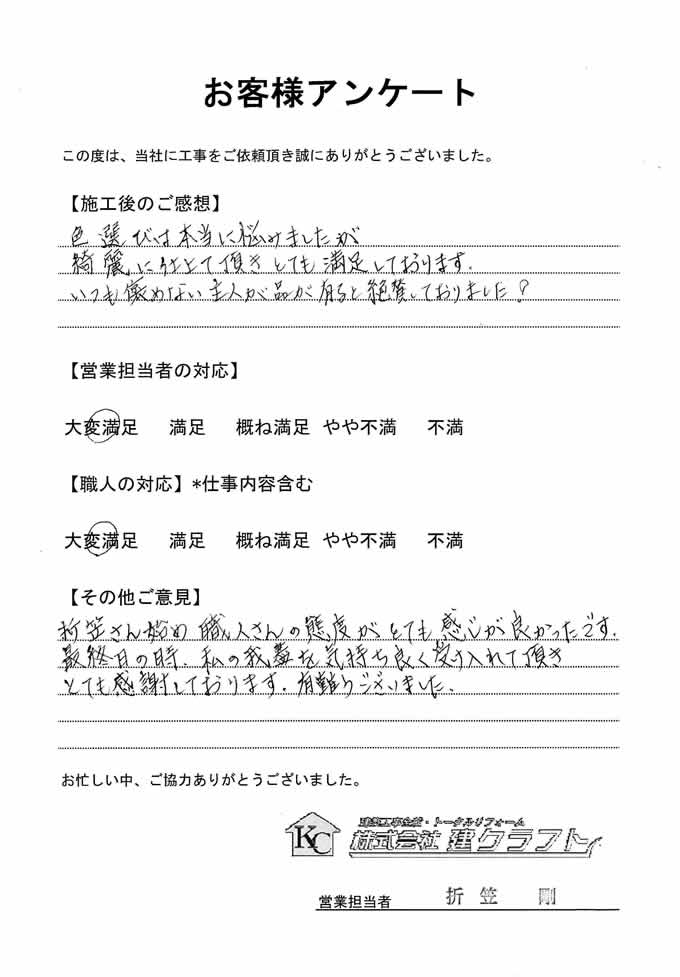 お客様アンケート
この度は、当社に工事をご依頼頂き誠にありがとうございました。
【施工後のご感想】
色選びは本当に悩みましたが
綺麗に仕上て頂きとても満足しております.
いつも褒めない主人が品が有ると絶賛しておりました?
【営業担当者の対応】
大変満足 満足 概ね満足 やや不満 不満
【職人の対応】*仕事内容含む
大変満足 満足 概ね満足 やや不満 不満
【その他ご意見】
折笠さん始め職人さんの態度がとても感じが良かったです.
最終日の時.私の我儘を気持ち良く受け入れて頂き
とても感謝しております.有難うございました.
お忙しい中、ご協力ありがとうございました。
建築工事全般・トータルリフォーム
KC 株式会社 建クラフト
営業担当者 折笠 剛